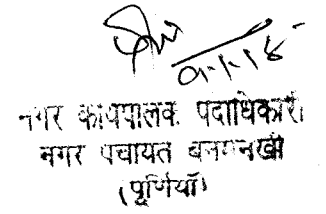 नगर कार्यपालक पदाधिकारी
नगर पंचायत बनमनखी
(पूर्णियाँ)